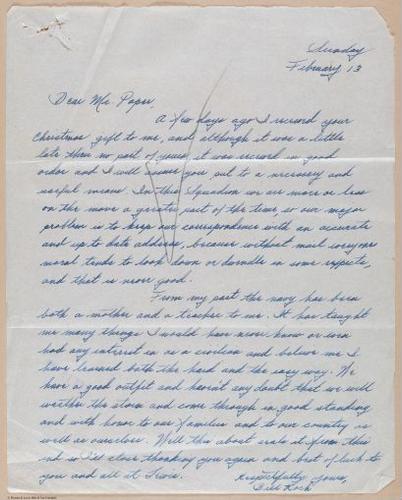 Sunday
February 13
Dear Mr. Pope,
A few days ago I received your
Christmas gift to me, and although it was a little
late thru no part of yours, it was received in good
order and I will assure you put to a necessary and
useful means. In this Squadron we are more or less
on the move a greater part of the time, so our major
problem is to keep our correspondence with an accurate
and up to date address, because without mail everyone
moral tends to look down or dwindle in some respects,
and that is never good.
From my part the navy has been
both a mother and a teacher to me. It has taught
me many things I would have never know or even
had any interest in as a civilian and believe me I
have learned both the hard and the easy way. We
have a good outfit and haven't any doubt that we will
weather the storm and come through in good standing
and with honor to our families and to our country as
well as ourselves. Well this about seals it from this
end so I'll close thanking you again and best of luck to
you and all at
Respectfully yours,
Bill Rock